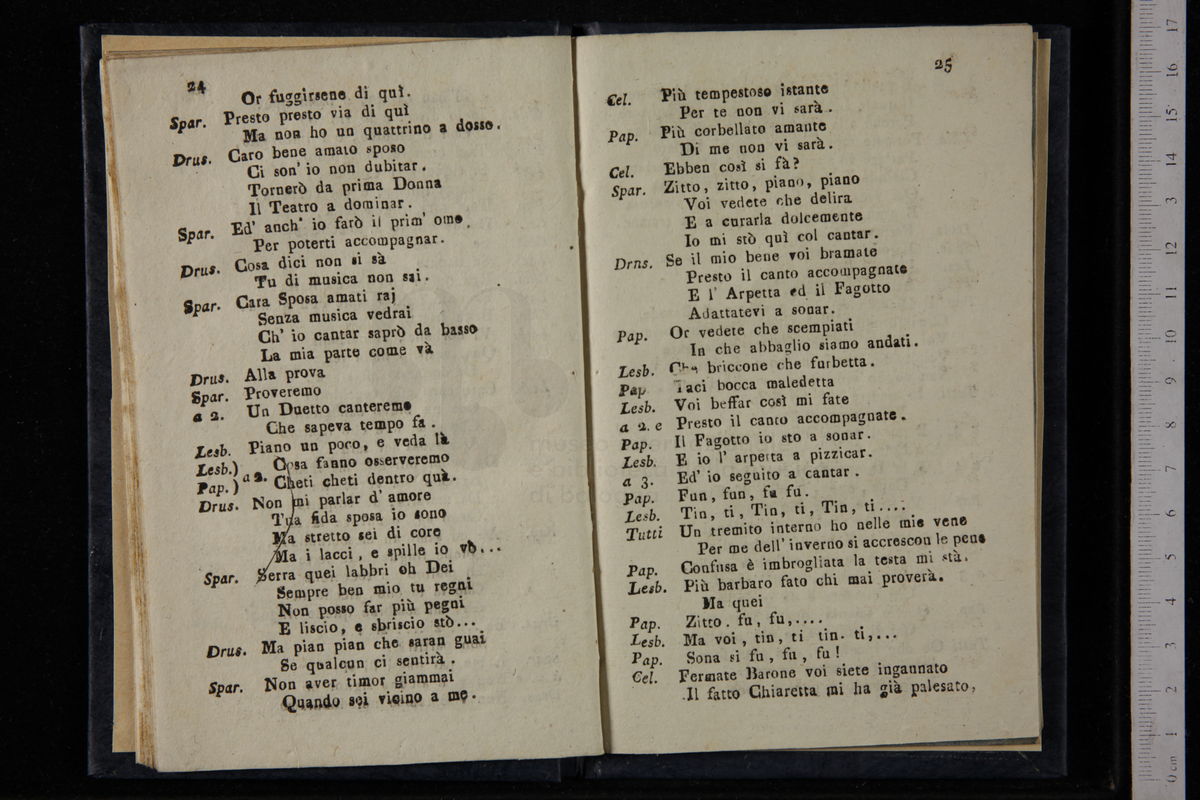 24
Or fuggirsene di quì.
Spar. Presto presto via di quì
Ma non ho un quattrino a dosso.
Drus. Caro bene amato sposo
Ci son' io non dubitar.
Tornerò da prima Donna
Il Teatro a dominar.
Spar. Ed' anch' io farò il prim' omo.
Per poterti accompagnar.
Drus. Cosa dici non si sà
Tu di musica non sai.
Spar. Cara Sposa amati raj
Senza musica vedrai
Ch' io cantar saprò da basso
La mia parte come và
Drus. Alla prova
Spar. Proveremo
a 2. Un Duetto canteremo
Che sapeva tempo fa.
Lesb. Piano un poco, e veda là
Lesb.) Cosa fanno osserveremo
Pap.) a 2. Cheti cheti dentro quà.
Drus. Non mi parlar d' amore
Tua fida sposa io sono
Ma stretto sei di core
Ma i lacci, e spille io vò...
Spar. Serra quei labbri oh Dei
Sempre ben mio tu regni
Non posso far più pegni
E liscio, e sbriscio stò...
Drus. Ma pian pian che saran guai
Se qualcun ci sentirà.
Spar. Non aver timor giammai
Quando sei vicino a me.
25
Cel. Più tempestoso istante
Per te non vi sarà.
Pap. Più corbellato amante
Di me non vi sarà.
Cel. Ebben così si fà?
Spar. Zitto, zitto, piano, piano
Voi vedete che delira
E a curarla dolcemente
Io mi stò quì col cantar.
Drns. Se il mio bene voi bramate
Presto il canto accompagnate
E l' Arpetta ed il Fagotto
Adattatevi a sonar.
Pap. Or vedete che scempiati
In che abbaglio siamo andati.
Lesb. Che briccone che furbetta.
Pap Taci bocca maledetta
Lesb. Voi beffar così mi fate
a 2. e Presto il canto accompagnate.
Pap. Il Fagotto io sto a sonar.
Lesb. E io l' arpetta a pizzicar.
a 3. Ed' io seguito a cantar.
Pap. Fun, fun, fu fu.
Lesb. Tin, ti, Tin, ti, Tin, ti....
Tutti Un tremito interno ho nelle mie vene
Per me dell' inverno si accrescon le pene
Pap. Confusa è imbrogliata la testa mi stà.
Lesb. Più barbaro fato chi mai proverà.
Ma quei
Pap. Zitto. fu, fu,....
Lesb. Ma voi, tin, ti tin. ti,...
Pap. Sona si fu, fu, fu!
Cel. Fermate Barone voi siete ingannato
Il fatto Chiaretta mi ha già palesato,